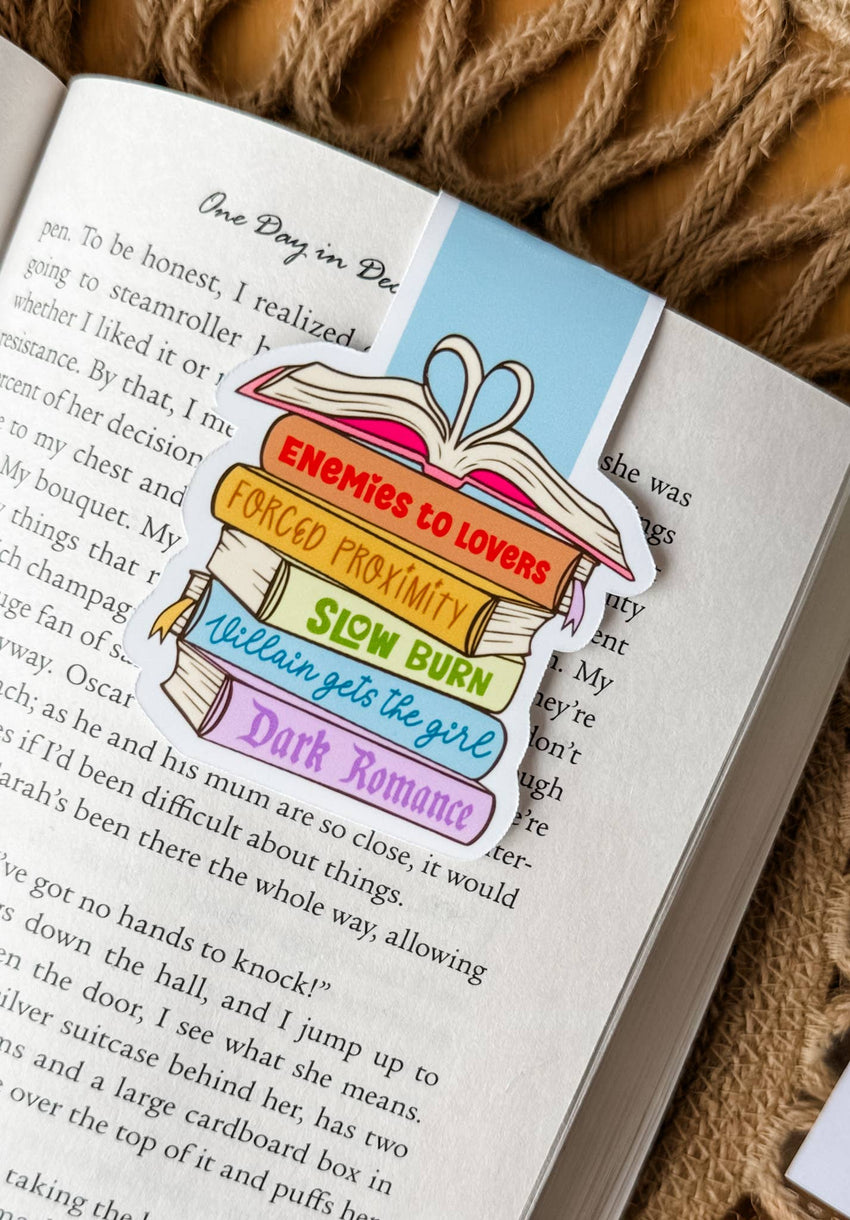 One Day in Dec
pen. To be honest, I realized
going to steamroller
whether I liked it or
resistance. By that, I me
of her decision
to my chest and
My bouquet. My
things that
champag
fan of
Oscar
as he and his mum are so close, it would
if I'd been difficult about things.
been there the whole way, allowing
she was
My
they're
don't
ENEMIES TO LOVERS
FORCED PROXIMITY
SLOW BURN
Villain gets the girl
Dark Romance
got no hands to knock!”
down the hall, and I jump up to
the door, I see what she means.
suitcase behind her, has two
and a large cardboard box in
over the top of it and puffs her
taking the